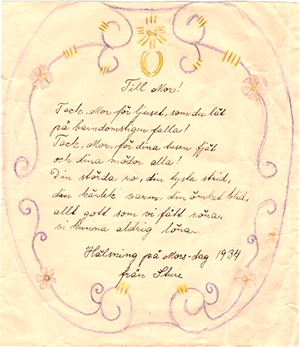 Till Mor!
Tack, Mor, för ljuset, som du lät
på barndomstigen falla!
Tack, Mor, för dina tusen fjät
och dina mödor alla!
Din störda ro, din tysta strid,
din kärlek varm, din ömhet blid,
allt gott som vi fått röna,
vi kunna aldrig löna.
Hälsning på Mors-dag 1934
från Sture